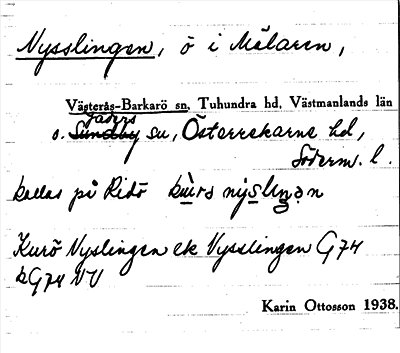 Nysslingen, ö i Mälaren,
Västerås-Barkarö sn, Tuhundra hd, Västmanlands län
Fogdö
o. Sundby su, Österrekarne hd,
Söderm. l.
kallas på Ridö kùrs nysliŋən
Kurö Nyslingen ek Nysslingen G74
kG74 NV
Karin Ottosson 1938.